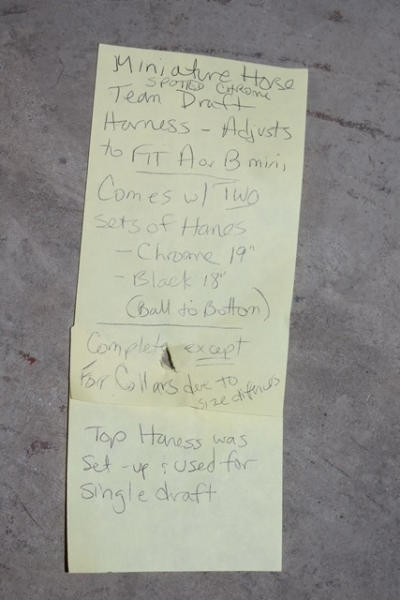 Miniature Horse
SPOTTED CHROME
Team Draft
Harness - Adjusts
to FIT A or B mini,
Comes w/ TWO
sets of Hames
- Chrome 19"
- Black 18"
(Ball to Bottom)
Complete except
For Collars due to
size differences
Top Harness was
Set-up & used for
single draft